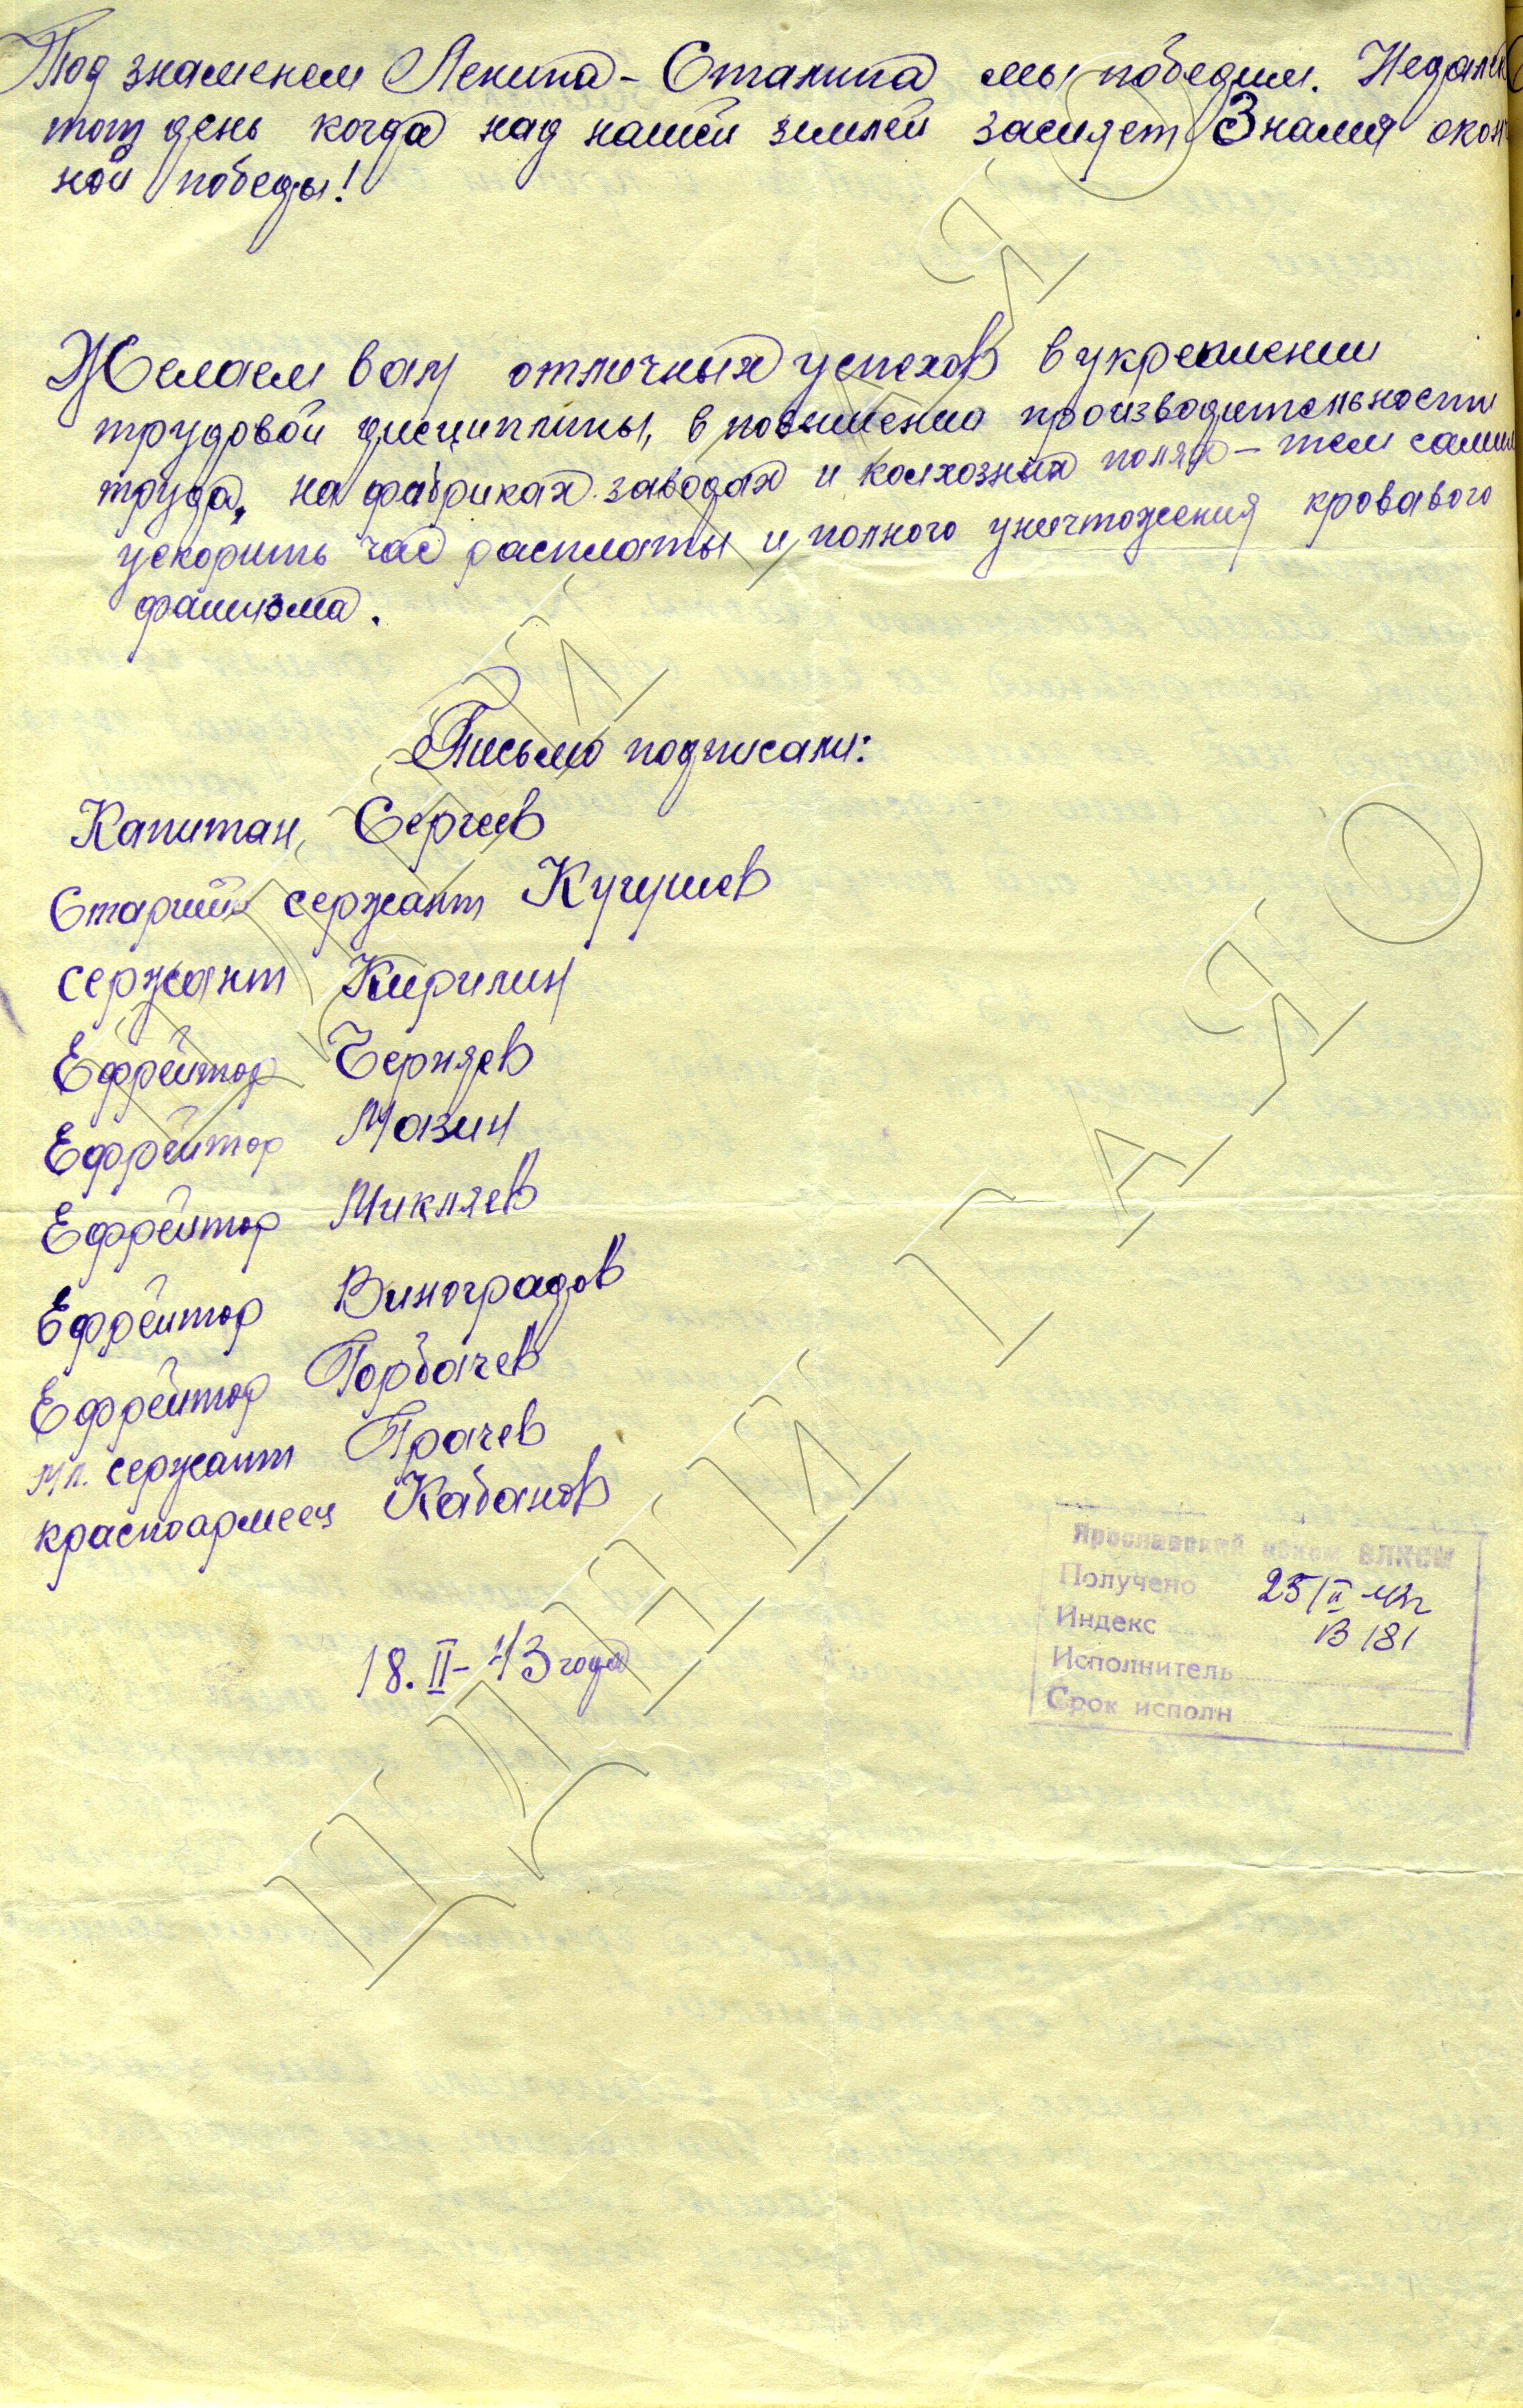 Под знаменем Ленина - Сталина мы победим. Недалек
тот день когда над нашей землей засияет Знамя окон
ной победы!
Желаем вам отличных успехов в укреплении
трудовой дисциплины, в повышении производительности
труда, на фабриках заводах и колхозных полях - тем самым
ускорить час расплаты и полного уничтожения кровавого
фашизма.
Письмо подписали:
Капитан Сергеев
Старший сержант Кугушев
сержант Кирилин
Ефрейтор Черняев
Ефрейтор Мазин
Ефрейтор Микляев
Ефрейтор Виноградов
Ефрейтор Горбачев
мл. сержант Грачев
красноармеец Кабанов
18. II - 43 года
Ярославский обком ВЛКСМ
Получено 25/II 43г
Индекс В 181
Исполнитель
Срок исполн
ЦДНИ ГАЯО
ЦДНИ ГАЯО